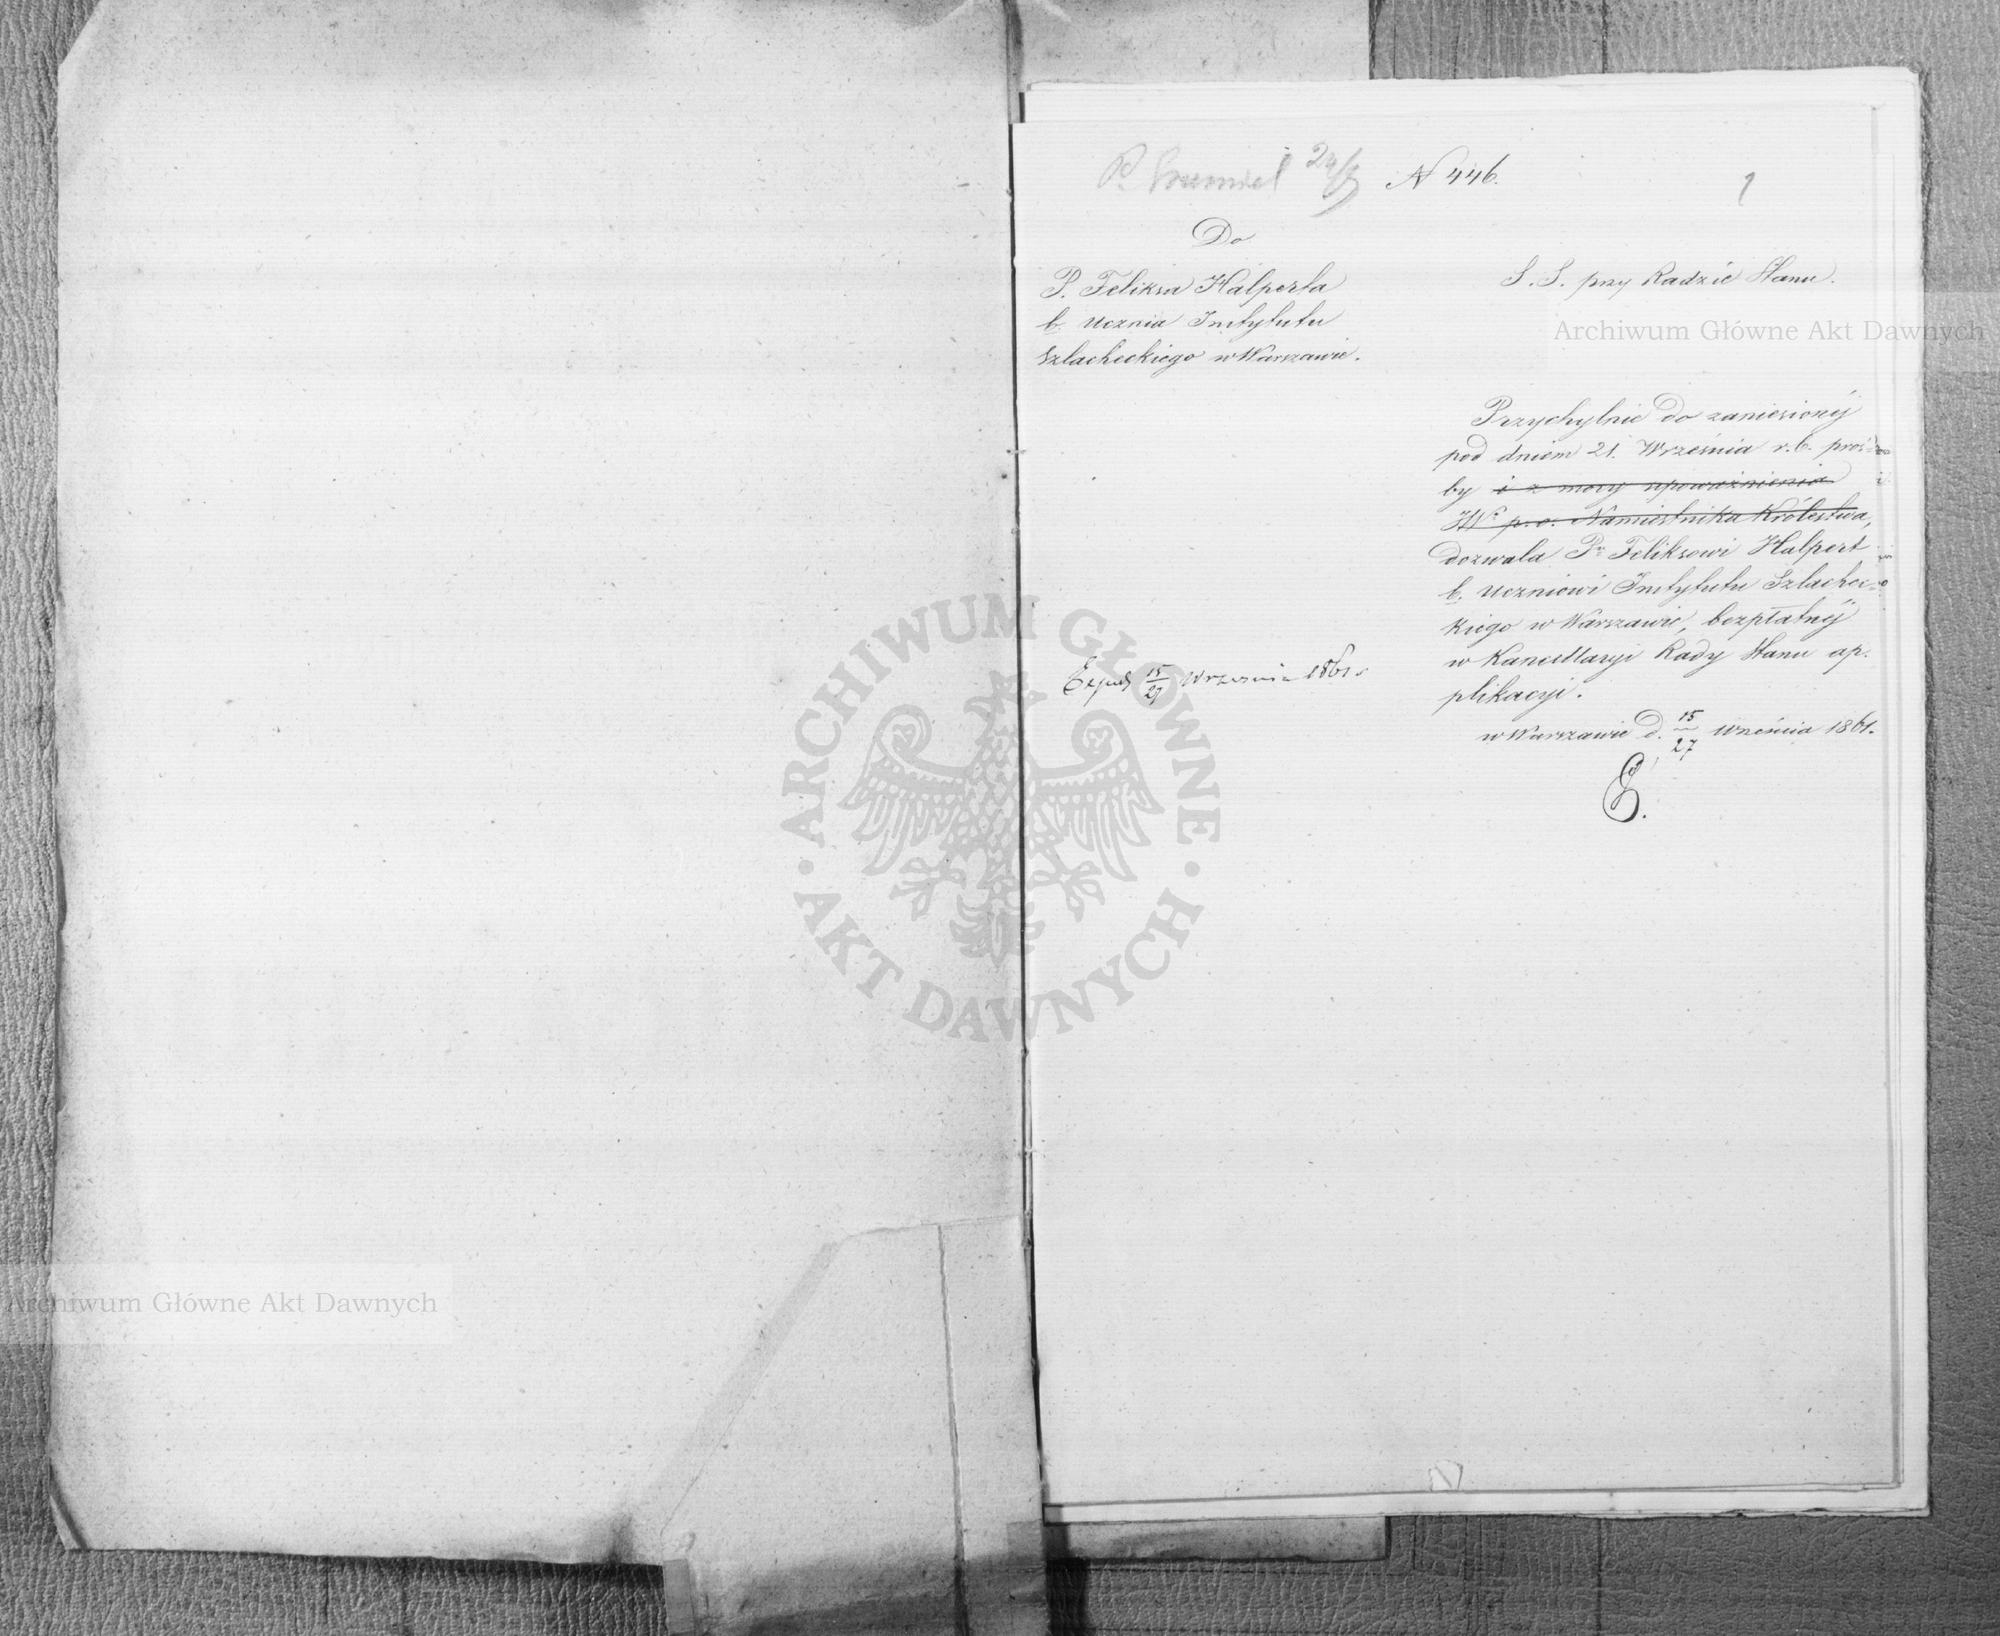 24/9 N 446.
1
Do
P. Feliksa Halperta
b. Ucznia Instytutu
Szlacheckiego w Warszawie.
S. S. przy Radzie Stanu.
Archiwum Główne Akt Dawnych
Przychylnie do zaniesionéj
pod dniem 21. Września r. b. proś-
by i z mocy upoważnienia
JW° p. o. Namiestnika Królestwa,
dozwala P. Feliksowi Halpert
b. Uczniowi Instytutu Szlachec-
kiego w Warszawie, bezpłatnéj
w Kancellaryi Rady Stanu ap-
plikacyi.
w Warszawie d. 15/27 Września 1861.
Exped. 15/27 Września 1861 r
ARCHIWUM GŁÓWNE
AKT DAWNYCH
Archiwum Główne Akt Dawnych